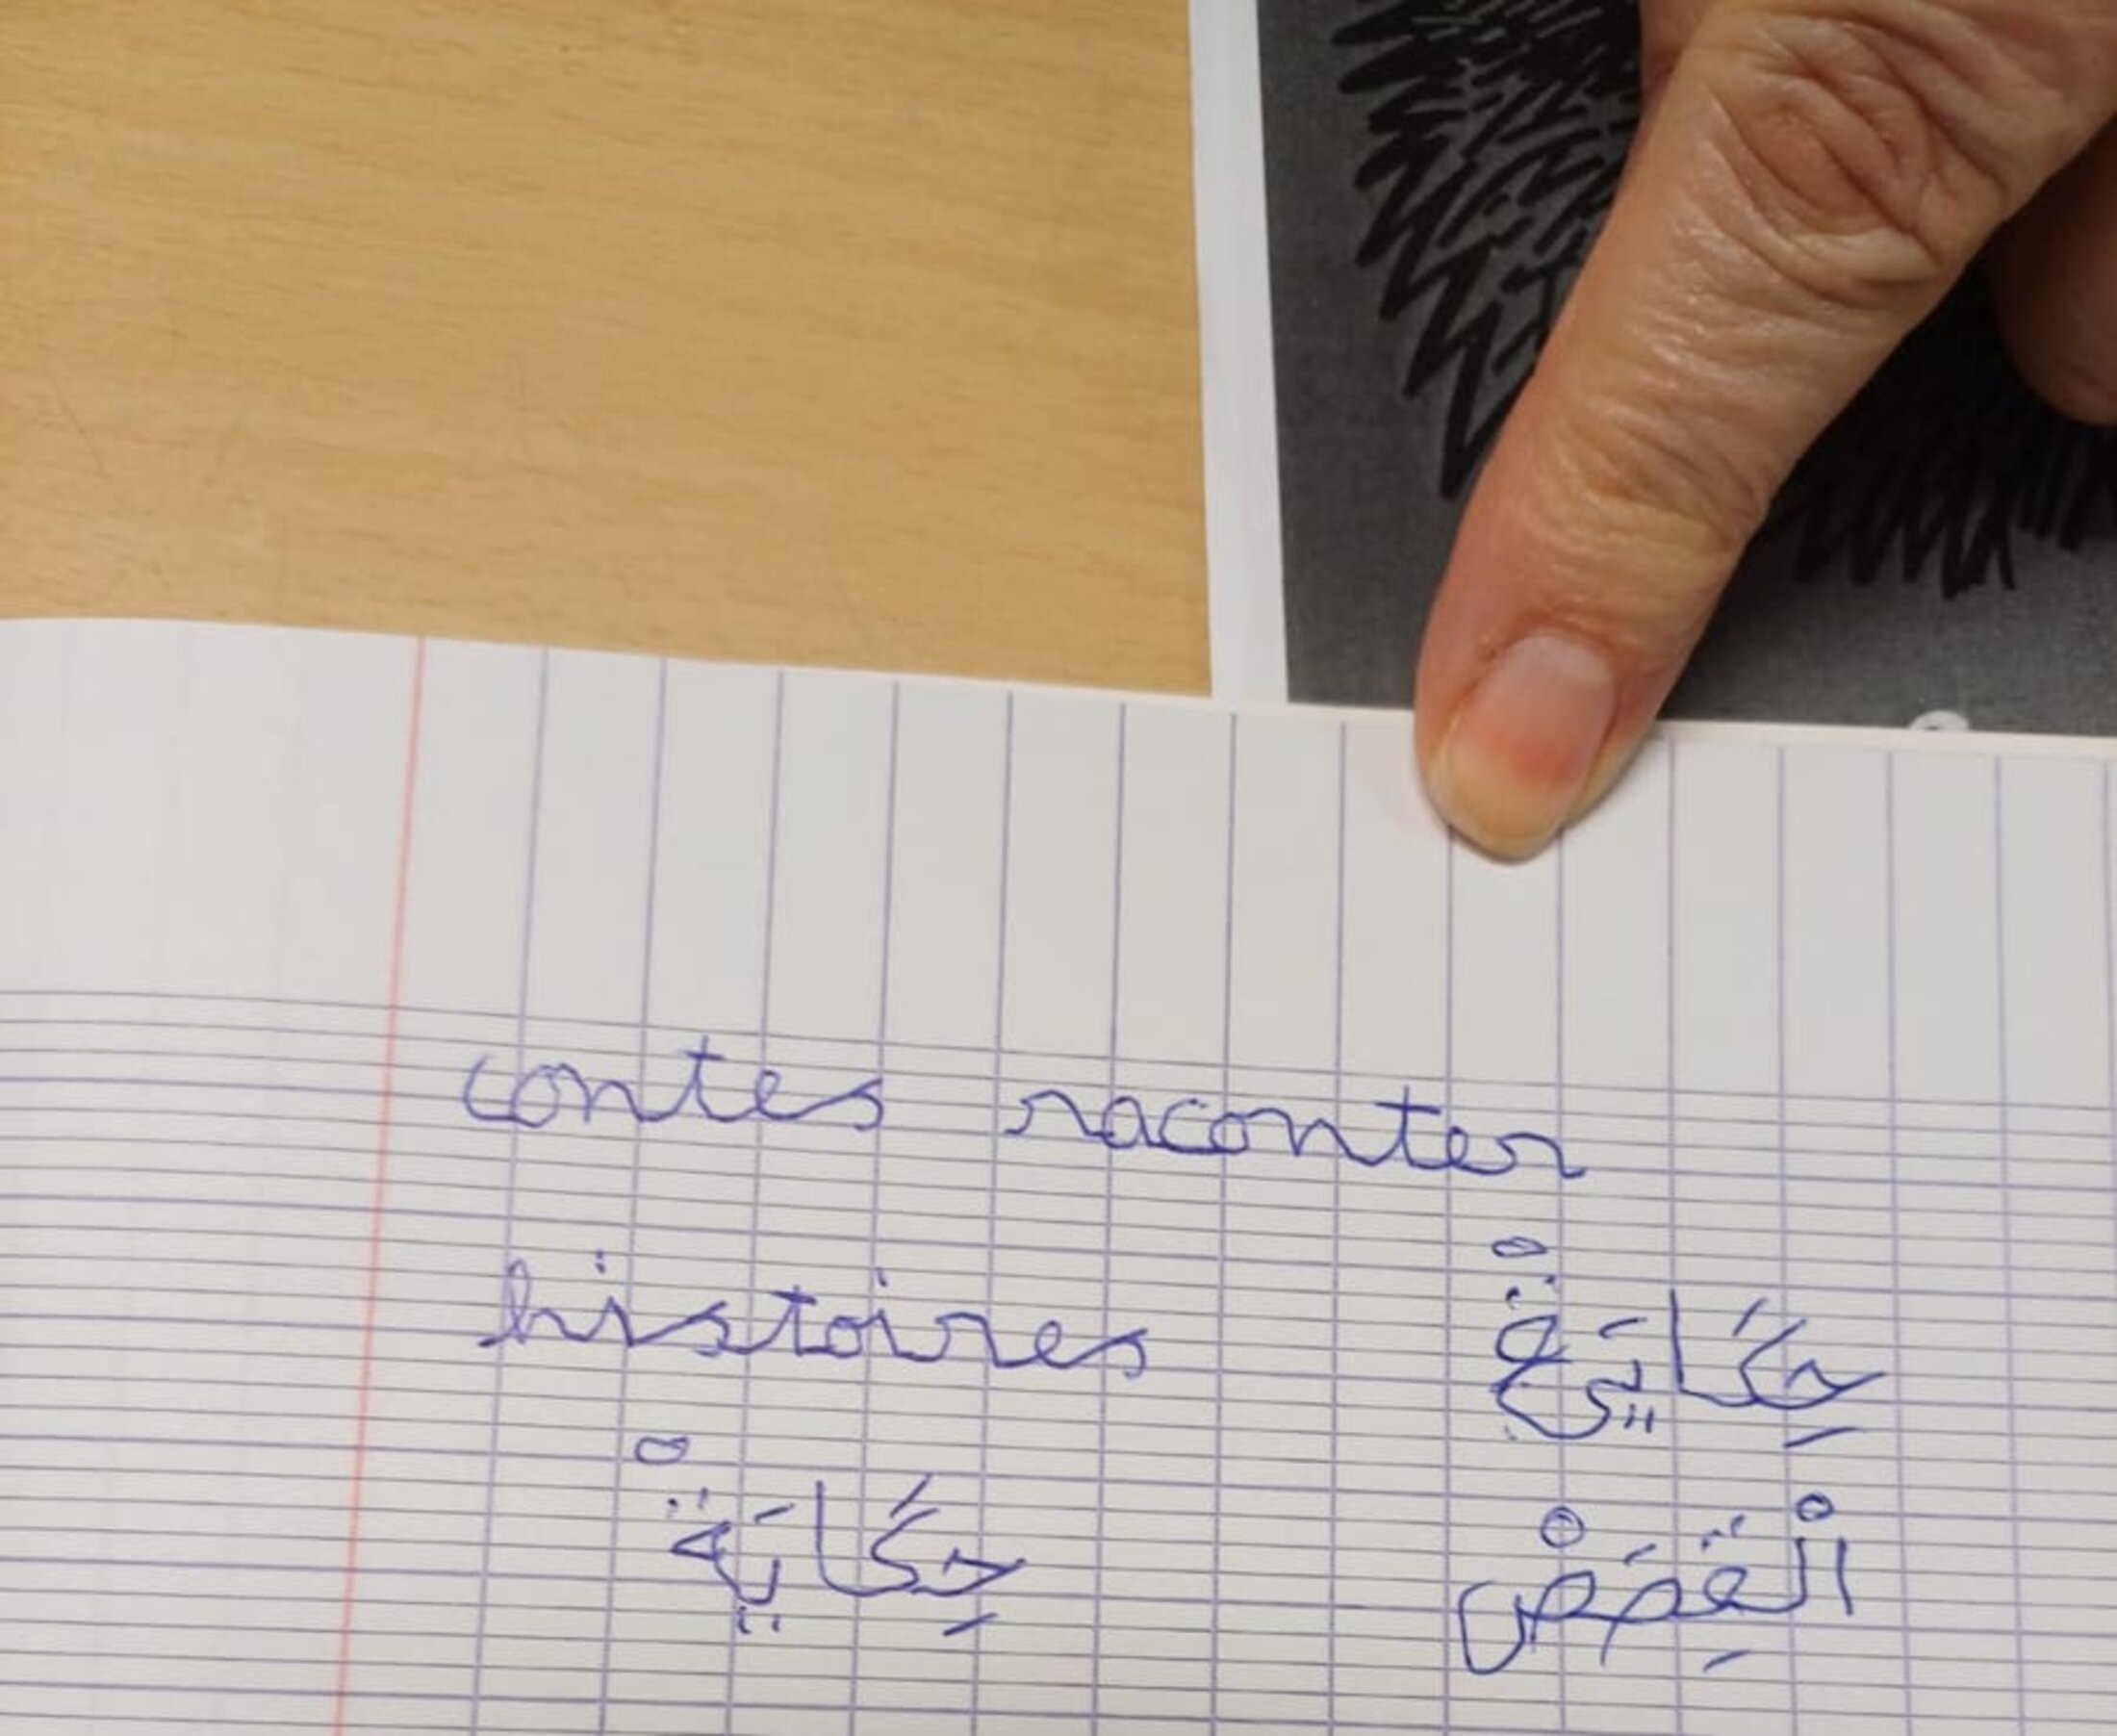 contes raconter
histoires
حِكَايَةْ
حِكَايَةْ
الْقِصَصْ